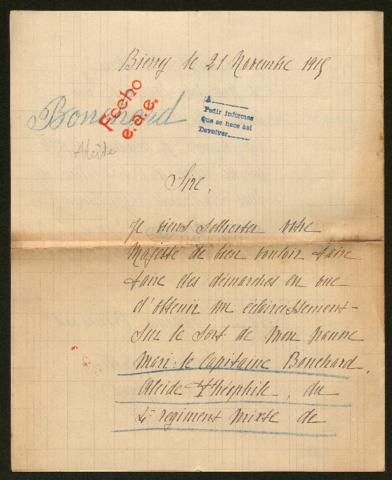 Bierry le 21 Novembre 1915
Bonchard
Alcide
Fecho
e.a.e.
A
Pedir informes
Que se hace así
Devolver
Sire,
Je viens solliciter votre
Majesté de bien vouloir faire
faire des démarches en vue
d'obtenir un éclaircissement
sur le sort de mon pauvre
Mari le Capitaine Bonchard
Alcide Théophile, du
4e régiment mixte de